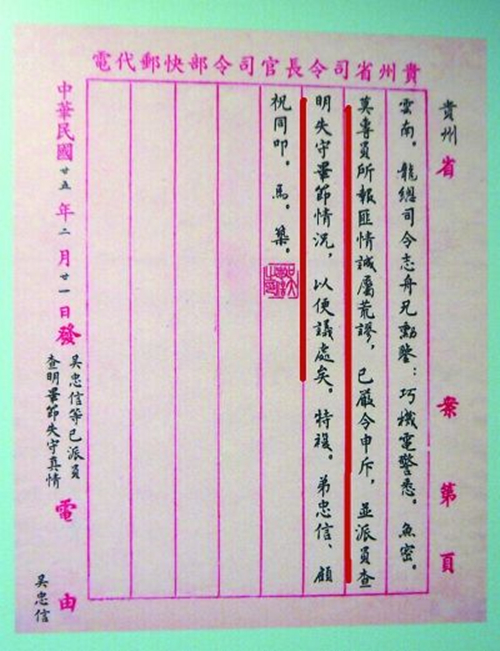 貴州省司令長官司令部快郵代電
貴州省 案第頁
雲南。龍總司令志舟兄勳鑒：巧機電警悉。魚密。
莫專員所報匪情誠屬荒謬，已嚴令申斥，並派員查
明失守畢節情況，以便議處矣。特複。弟忠信、顧
祝同叩。馬。築。
中華民國廿五年二月廿一日發
吳忠信等已派員
查明畢節失守真情
電由
吳忠信